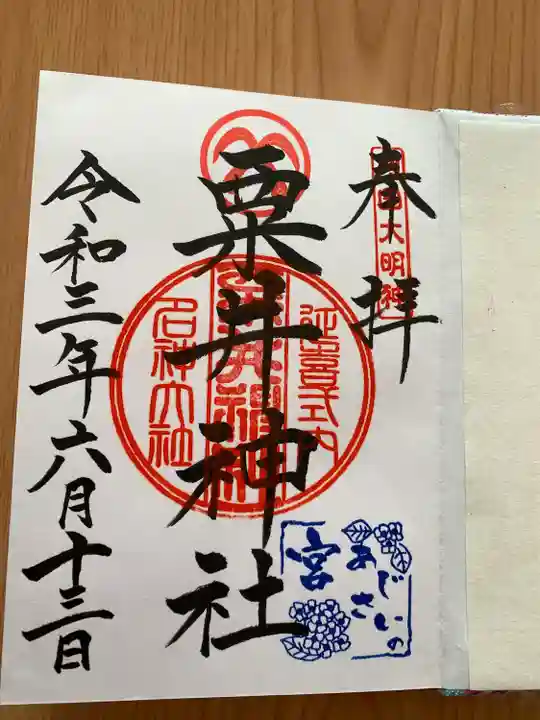 奉拝
大明神
粟井神社
延喜式内
粟井神社
名神大社
令和三年六月十三日
あじさいの
宮